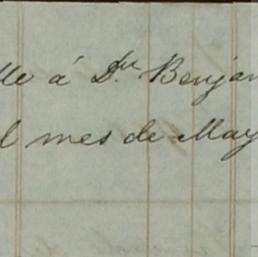 lle á Dn Benjam
l mes de May